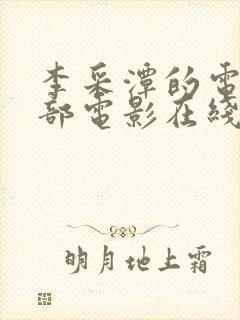 李采潭的電
部電影在綫
明月地上霜